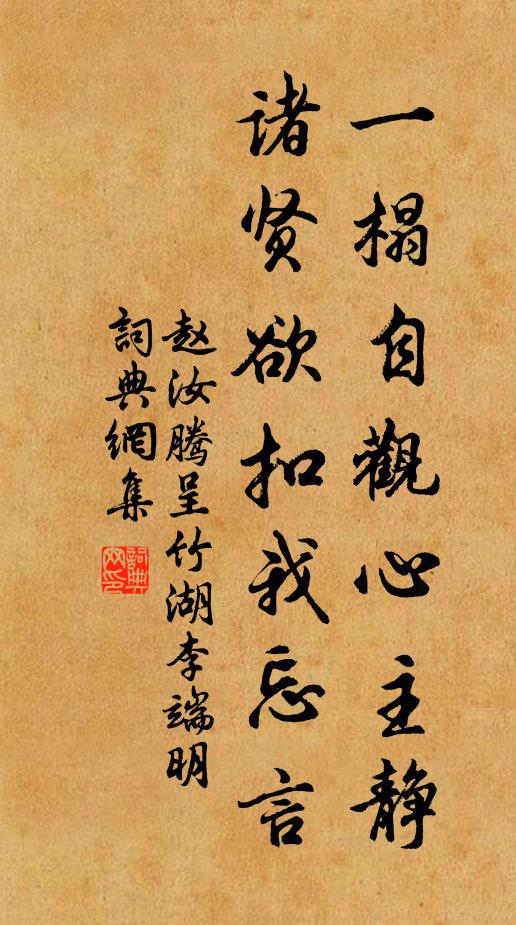 一榻自觀心主静
诸贤欲扣我忘言
赵汝腾呈竹湖李端明
詞典網集
詞典网印